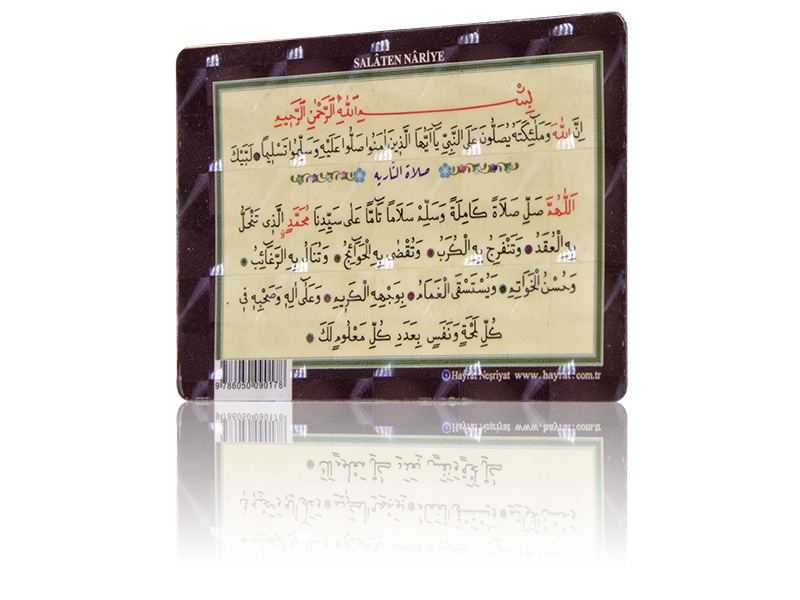 SALÂTEN NÂRİYE
بِسْمِ اللّٰهِ الرَّحْمٰنِ الرَّحِيمِ
اِنَّ اللّٰهَ وَمَلٰٓئِكَتَهُ يُصَلُّونَ عَلَى النَّبِيِّ يَٓا اَيُّهَا الَّذِينَ اٰمَنُوا صَلُّوا عَلَيْهِ وَسَلِّمُوا تَسْلِيمًا لَبَّيْكَ
صلاة الناريه
اَللّٰهُمَّ صَلِّ صَلَاةً كَامِلَةً وَسَلِّمْ سَلَامًا تَٓامًّا عَلٰى سَيِّدِنَا مُحَمَّدٍ الَّذِى تَنْحَلُّ
بِهِ الْعُقَدُ وَتَنْفَرِجُ بِهِ الْكُرَبُ وَتُقْضٰى بِهِ الْحَوَٓائِجُ وَتُنَالُ بِهِ الرَّغَٓائِبُ
وَحُسْنُ الْخَوَاتِمِ وَيُسْتَسْقَى الْغَمَامُ بِوَجْهِهِ الْكَرِيمِ وَعَلٰٓى اٰلِهِ وَصَحْبِهِ فِى
كُلِّ لَمْحَةٍ وَنَفَسٍ بِعَدَدِ كُلِّ مَعْلُومٍ لَكَ
9 786050 090178
Hayrat Neşriyat www.hayrat.com.tr